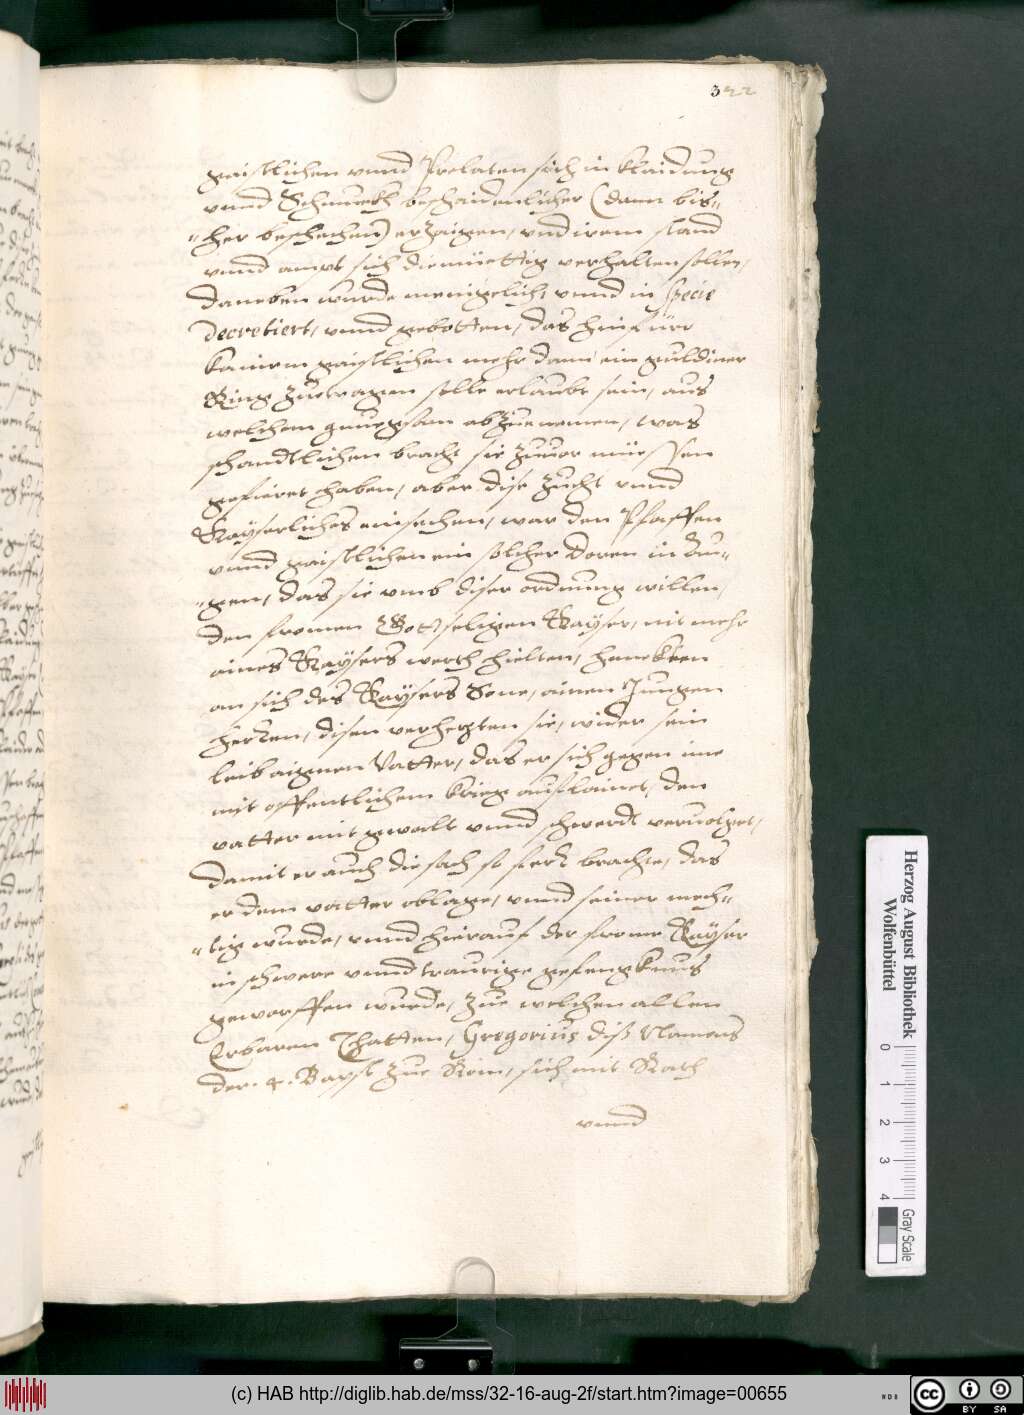 322
gaistlichen vnnd Prelaten sich in klaidung
vnnd Schmuckh beschaidenlicher (dann bis-
-her beschechen) erzaigen, vnd irem stand
vnnd ampt sich diemüettig verhalten sollen,
daneben wurde menigelich, vnnd in specie
decretiert, vnnd gebotten, das hinfürr
kainem gaistlichen mehr dann ein guldiner
Ring zuetragen solle erlaubt sein, aus
welchem gnuegsam abzuenemen, was
schandtlichen bracht sie zuuor müessen
gefieret haben, aber dise zucht vnnd
Kayserliches einsechen, war den Pfaffen
vnnd gaistlichen ein solcher Doren in Au-
-gen, das sie vmb diser ordnung willen,
den fromen Gottseligen Kayser, nit mehr
aines Kaysers werth hielten, henckten
an sich des Kaysers Sone, ainen Jungen
herren, disen verhezten sie, wider sein
leib aignen Vatter, das er sich gegen ime
mit offentlichem krieg auflainet, den
vatter mit gewalt vnnd schwerdt veruolget,
damit er auch die sach so ferr brachte, das
er dem vatter oblage, vnnd seiner mech-
-tig wurde, vnnd hierauf der frome Kayser
in schwere vnnd traurige gefengknus
geworffen wurde, zue welchen allen
Erbaren Thatten, Gregorius diß Namens
der .4. Bapst zue Rom, sich mit Rath
vnnd
Herzog August Bibliothek
Wolfenbüttel
0 1 2 3 4
Gray Scale
(c) HAB http://diglib.hab.de/mss/32-16-aug-2f/start.htm?image=00655
cc BY SA